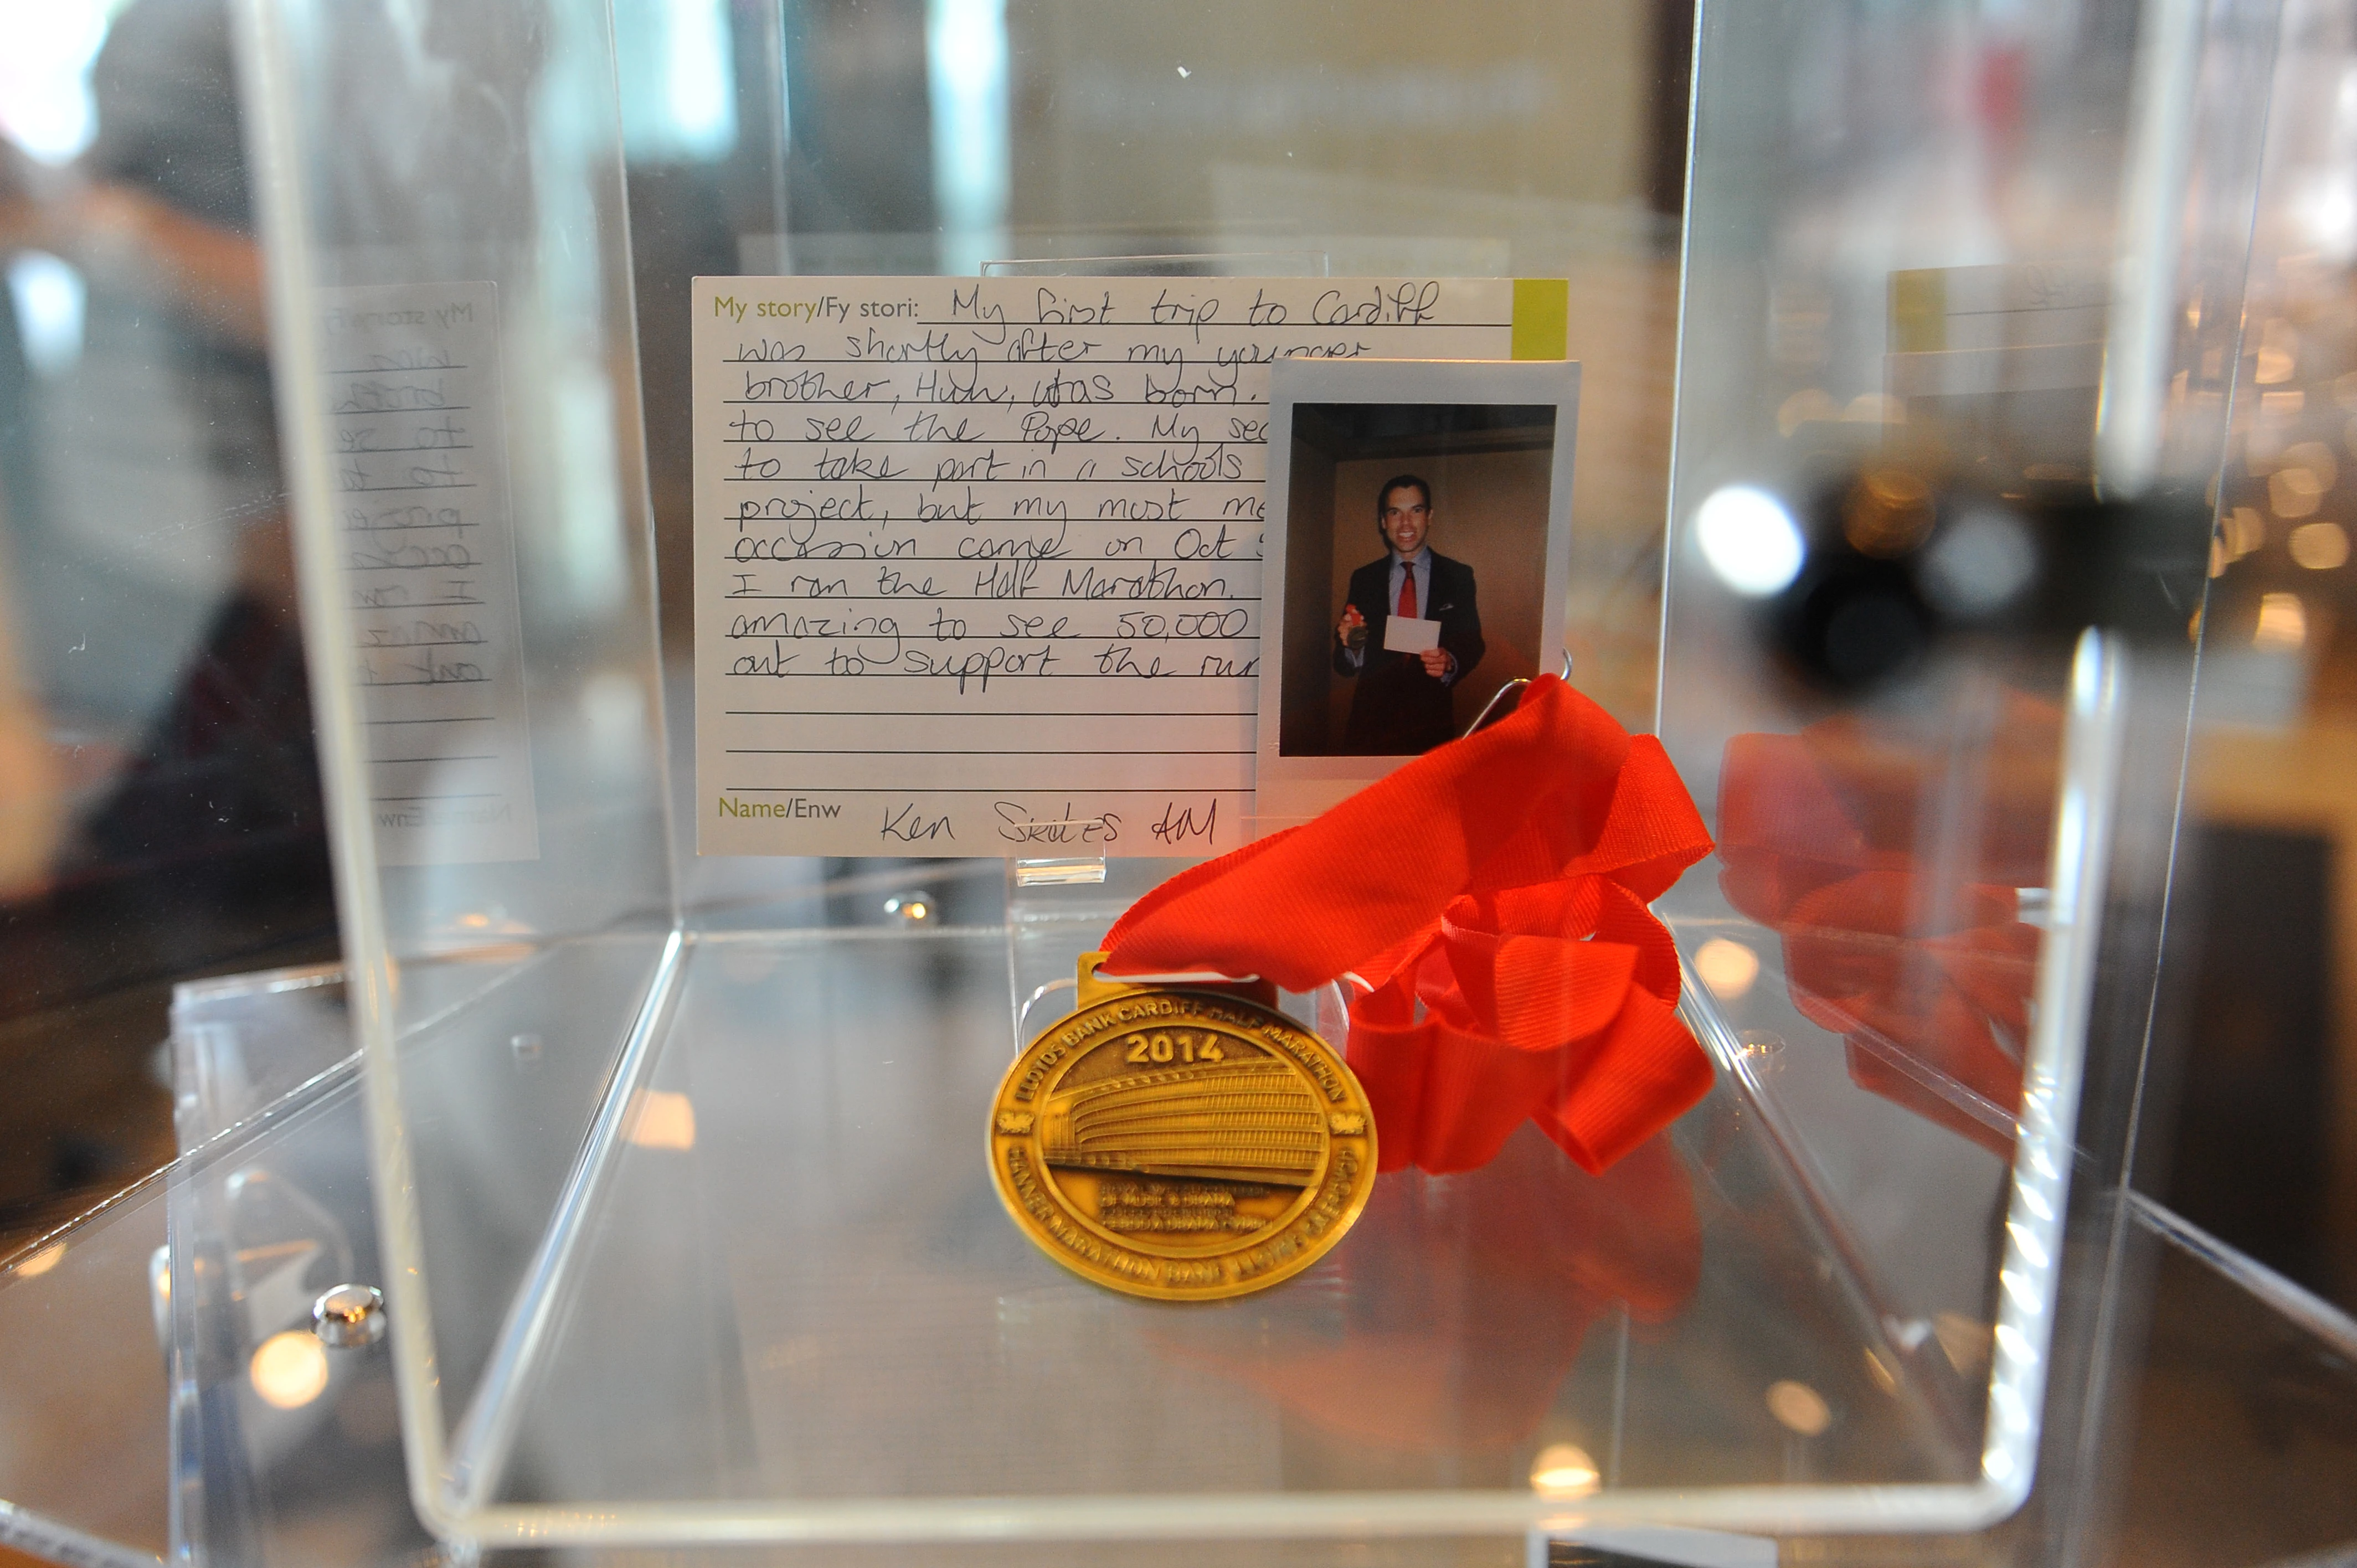 My story/Fy stori: My first trip to Cardiff
was shortly after my younger
brother, Huw, was born.
to see the Pope. My sec
to take part in a schools
project, but my most me
occasion came on Oct
I ran the Half Marathon.
amazing to see 50,000
out to support the run
Name/Enw Ken Skates AM
LLOYDS BANK CARDIFF HALF MARATHON
2014
HANNER MARATHON BANC LLOYDS CAERDYDD